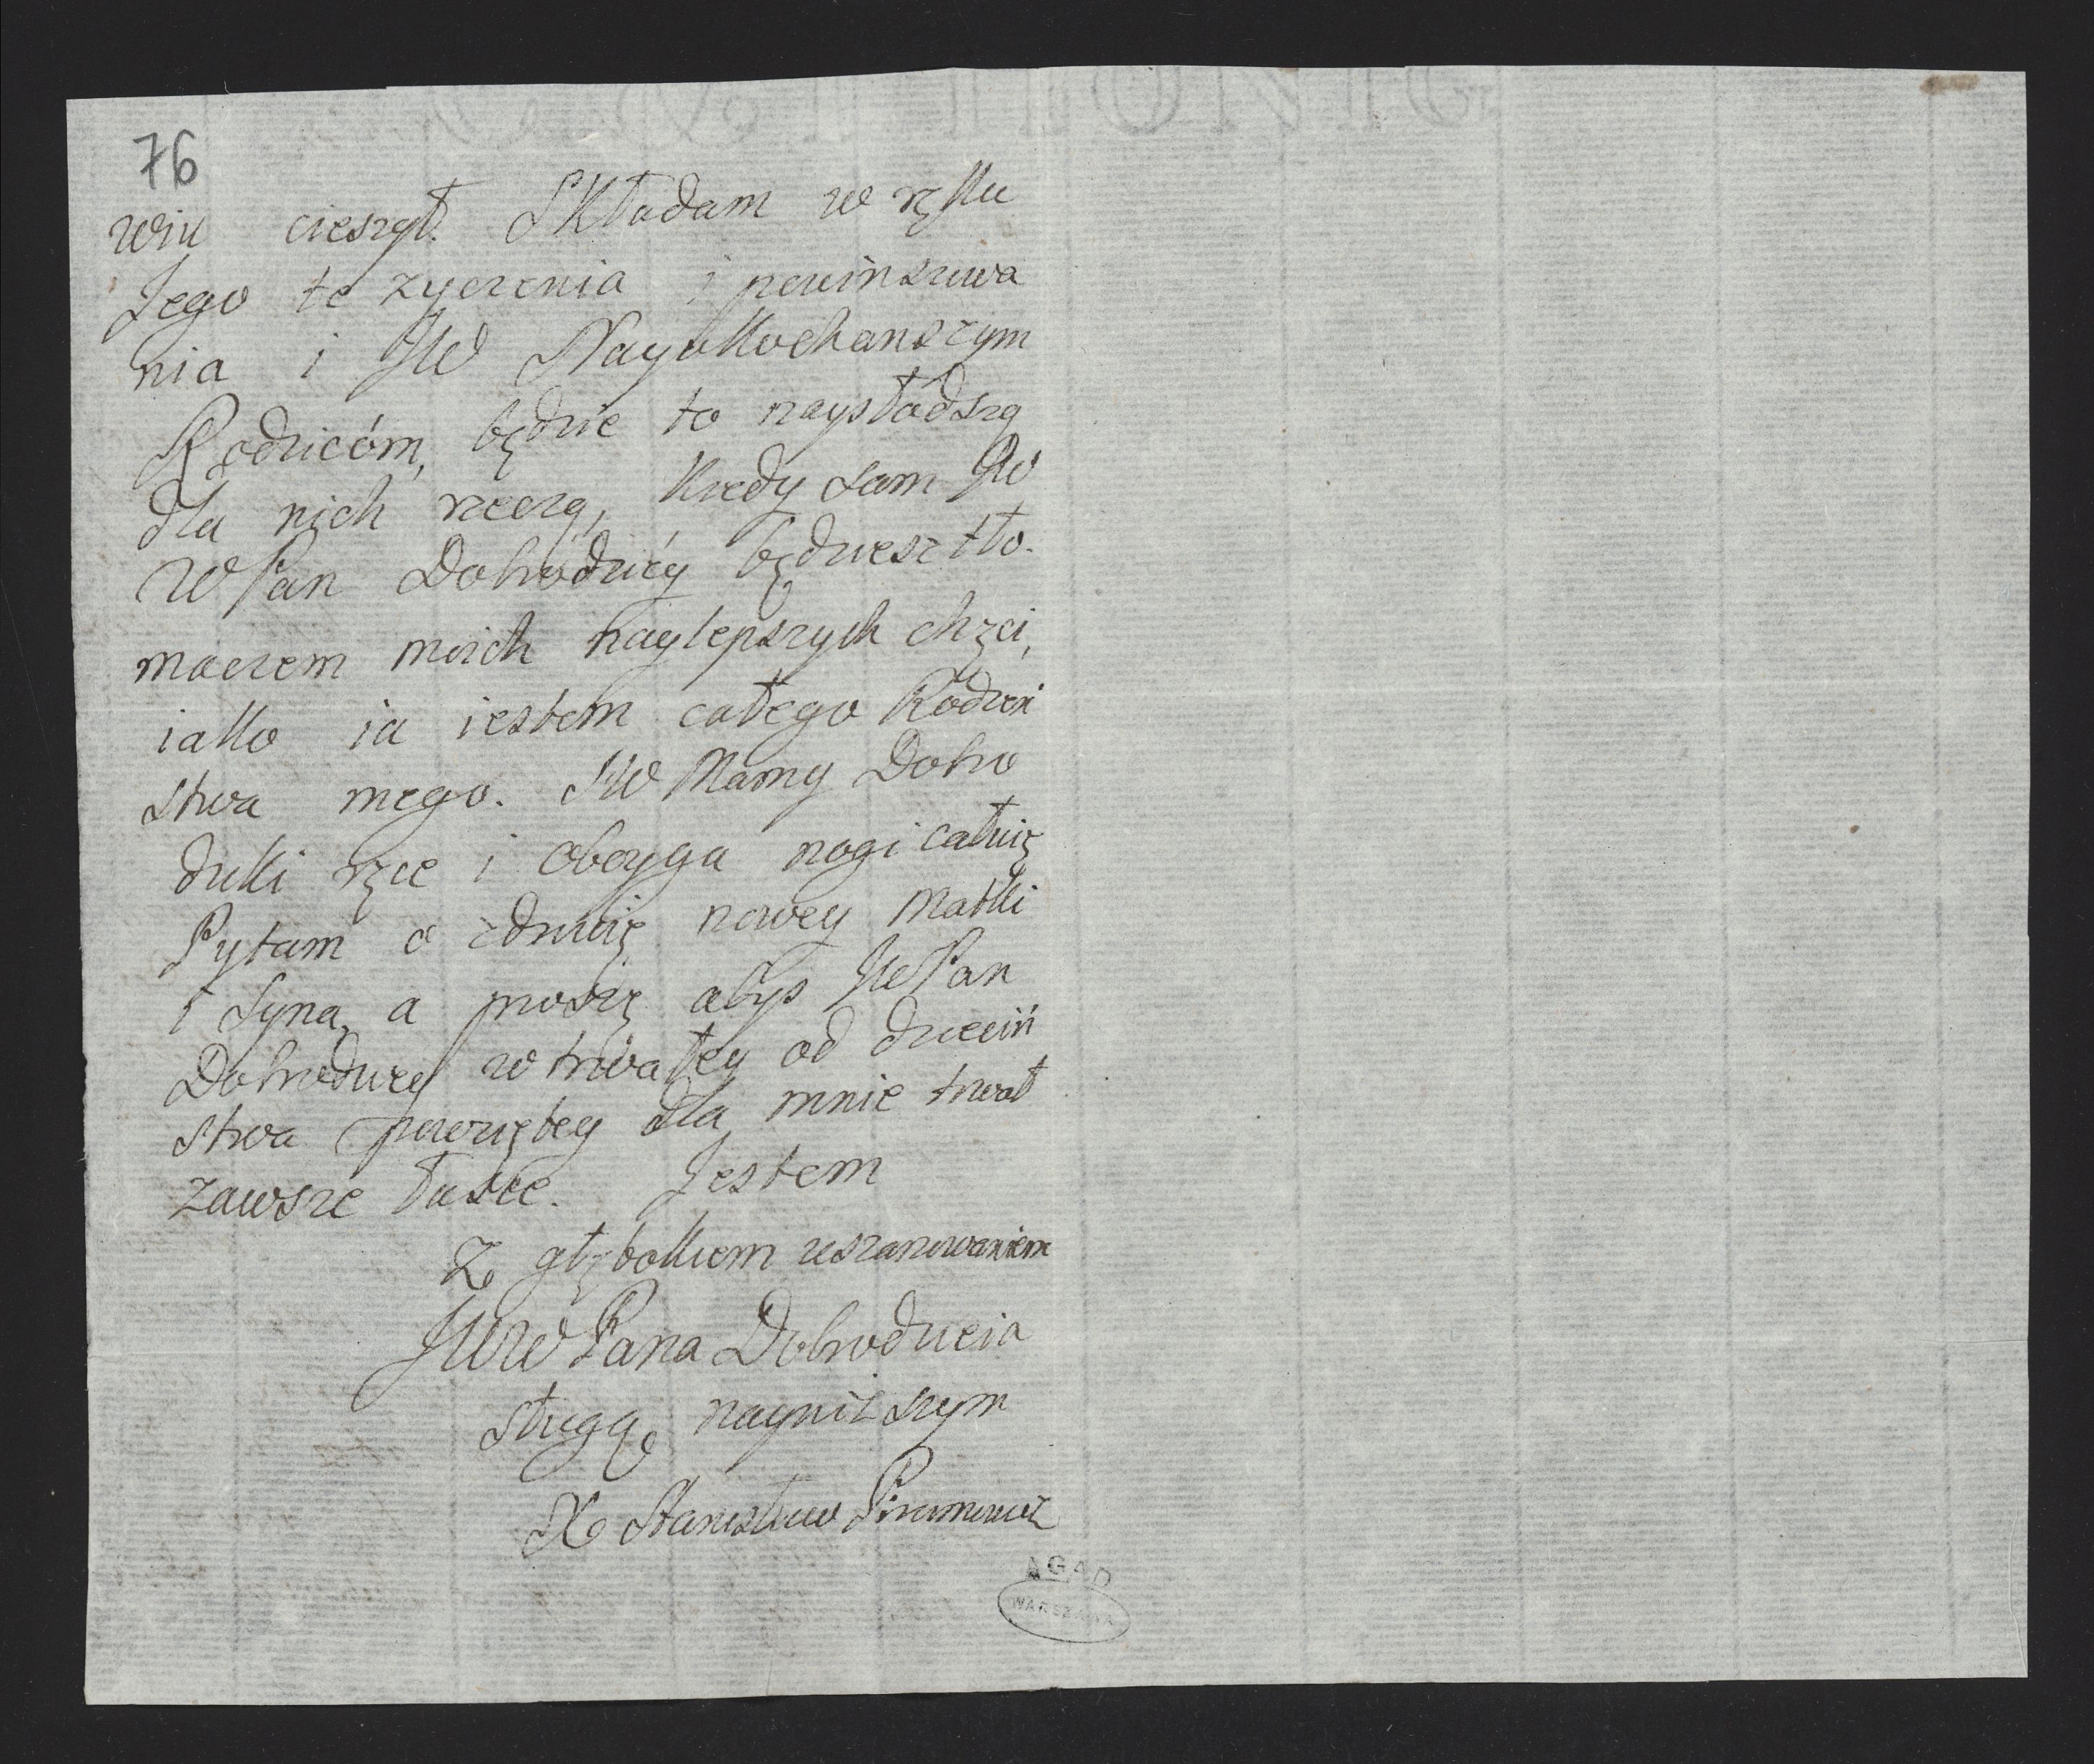 76
wiu cieszył. Składam w ręku
Jego te zyczenia i powinszowa
nia i JW Nayukochanszym
Rodzicóm, będzie to naysłodszą
dla nich rzeczą, kiedy sam JW
WPan Dobrodziéy będziesz tło-
maczem moich naylepszych chęci,
iako ia iestem całego Rodzeń
stwa mego. JW Mamy Dobro
dziki ręce i oboyga nogi całuię
Pytam o zdrowie nowey Matki
i Syna, a proszę abyś JWPan
Dobrodziey w trwałey od dzieciń
stwa powziętey dla mnie trwał
zawsze łasce. Jestem
Z głębokiem uszanowaniem
JWW Pana Dobrodzieia
sługą nayniższym
X Stanisław Piramowicz
AGAD
WARSZAWA